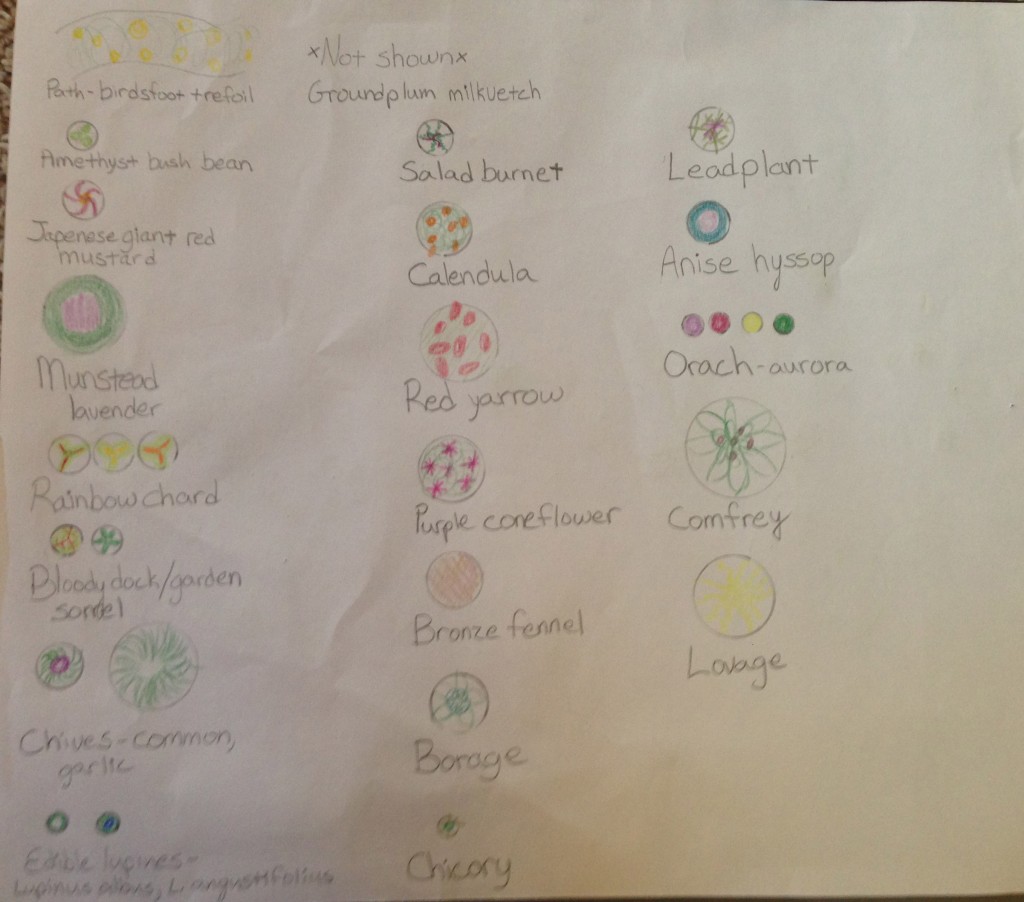 Path-birdsfoot trefoil
*Not shown*
Groundplum milkvetch
Amethyst bush bean
Japenese giant red
mustard
Munstead
lavender
Rainbow chard
Bloody dock/garden
sorrel
Chives-common,
garlic
Edible lupines-
Lupinus albus, L. angustifolius
Salad burnet
Calendula
Red yarrow
Purple coneflower
Bronze fennel
Borage
Chicory
Leadplant
Anise hyssop
Orach-aurora
Comfrey
Lovage